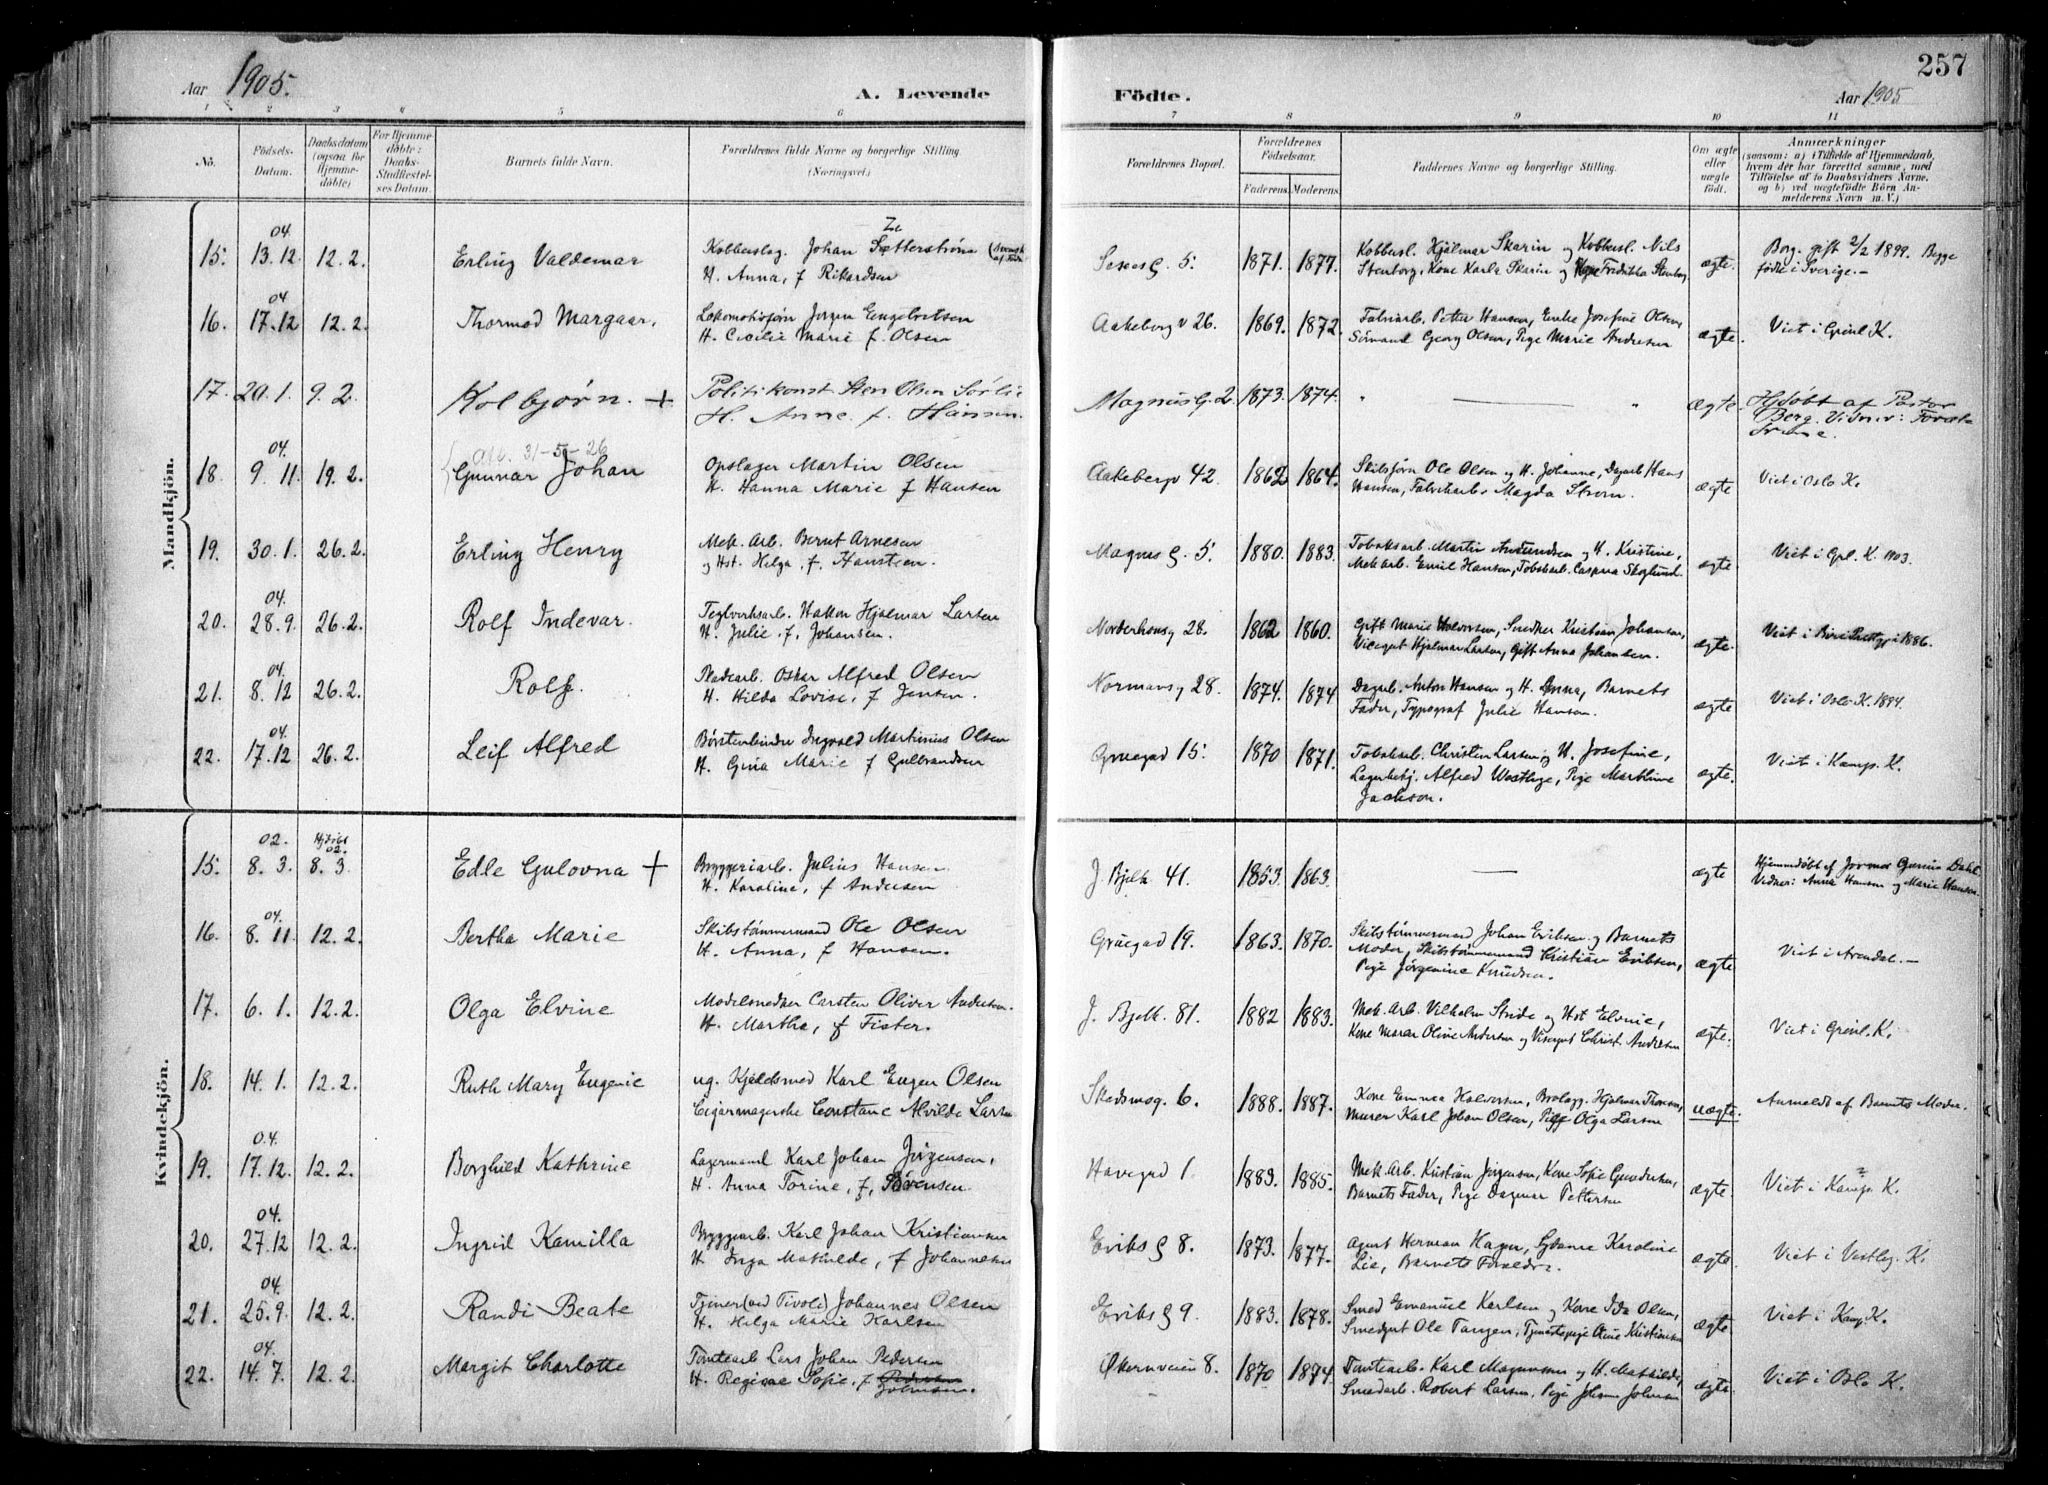 257
Aar 1905.
A. Levende
Födte.
Aar 1905
1 2 3 4 5 6 7 8 9 10 11
No.
Födsels-Datum.
Daabsdatum (ogsaa for Hjemme-döbte)
For Hjemme-döbte: Daabs-Stadfæstel-ses Datum.
Barnets fulde Navn.
Forældrenes fulde Navne og borgerlige Stilling.
(Næringsvei.)
Forældrenes Bopæl.
Forældrenes Födselsaar.
Faderens. Moderens.
Faddernes Navne og borgerlige Stilling.
Om ægte eller uægte födt.
Anmærkninger
(saasom: a) i Tilfælde af Hjemmedaab,
hvem der har forrettet samme, med
Tilföielse af to Daabsvidners Navne,
og b) ved uægtefödte Börn An-
melderens Navn m. V.)
Mandkjön.
04.
15. 13.12 12.2. Erling Valdemar Kobberslag. Johan Zetterström 5. 1871. 1877. Kobbersl. Hjalmar Skarin og Kobbersl. Nils ægte. Borg. gift 2/2 1899. Begge
H. Anna, f Rikardsen Stenborg, Kone Karla Skarin og Kone Fredrikka Stenborg fødte i Sverige.-
04
16. 17.12 12.2. Thormod Margaar. Jørgen Engebretsen Aakebergv 26. 1869. 1872. Petter Hansen, Enke Josefine Olsen, ægte. Viet i Grønl K.
H. Cecilie Marie f. Olsen Sømand Georg Olsen, Pige Marie Andresen
17. 20.1. 9.2. Kolbjørn. + Politikonst Sten Olsen Sørlie Magnus G. 2. 1873. 1874. " — " ægte. Hjdøbt af Pastor
H. Anne f. Hansen. Berg. Vidner:
04. att. 31-5-26
18. 9.11. 19.2. Gunnar Johan Opslager Martin Olsen Aakebergv 42. 1862 1864. Skibsfører Ole Olsen og H. Johanne, Dagarb Hans ægte Viet i Oslo K.
H. Hanna Marie f Hansen Hansen, Fabrikarb. Magda Strøm.
19. 30.1. 26.2. Erling Henry Mek. Arb. Bernt Arnesen Magnus G. 5. 1880. 1883. Tobaksarb. Martin Amundsen og H. Kristine, ægte. Viet i Grl. K. 1903.
og Hst. Helga, f. Hansteen. Mek arb. Emil Hansen, Tobakarb. Caspara Skoglund.
04.
20. 28.9. 26.2. Rolf Indevar. Teglverksarb. Hakon Hjalmar Larsen Norderhovsg 28. 1862 1860. Gift Marie Halvorsen, Snedker Kristian Johansen, ægte. Viet i 1886.
H. Julie f. Johansen. Hjalmar Larsen, Gift Anna Johansen.
04
21. 8.12 26.2. Rolf. Oskar Alfred Olsen Normansg 28. 1874. 1874 Dagarb. Anton Hansen og H. Anna, Barnets ægte Viet i Oslo K. 1894.
H. Hilda Lovise, f Jensen. Fader, Typograf Julie Hansen.
04.
22. 17.12 26.2. Leif Alfred Børstenbinder Ingvald Martinius Olsen Gruegad 15. 1870 1871. Tobakarb. Christen Larsen og H. Josefine, ægte. Viet i Kamp. K.
H. Gina Marie f Gulbrandsen Lagerbetj. Alfred Westlige, Pige Marthine
Jackson.
Kvindekjön.
02. Hjdøbt 02.
15. 8.3. 8.3 Edle Gulovna + Bryggeriarb. Julius Hansen J. Bjelk. 41. 1853. 1863. — ægte Hjemmedøbt af Jormod Gunius Dahl
H. Karoline, f Andersen Vidner: Anna Hansen og Marie Hansen
04.
16. 8.11 12.2. Bertha Marie Skibstømmermand Ole Olsen Gruegad 19. 1863. 1870. Skibstømmermand Johan Eriksen og Barnets ægte Viet i Arendal.-
H. Anna, f Hansen. Moder, Skibstømmermand Kristian Eriksen,
Pige Jørgenine Knudsen.
17. 6.1. 12.2. Olga Elvine Modelsnedker Carsten Oliver Andersen. J. Bjelk. 81. 1882 1883. Mek. Arb. Vilhelm Stride og Hst Elvine, ægte. Viet i Grønl. K.
H. Martha, f Fister. Kone Maren Oline Andersen og Visergut Christ. Andersen
18. 14.1. 12.2. Ruth Mary Eugenie ug. Kjeldsmed Karl Eugen Olsen Skedsmog. 6. 1888. 1887. Kone Emma Halvorsen, Brolægg. Hjalmar Thoresen, uægte. Anmeldt af Barnets Moder.
Cigarmagerske Constance Alvilde Larsen Murer Karl Johan Olsen, Olga Larsen
04.
19. 17.12. 12.2. Borghild Kathrine Lagermand Karl Johan Jörgensen, Havegad 1. 1883. 1885. Mek. Arb. Kristian Jörgensen, Kone Sofie Gundersen, ægte Viet i Kamp. K.
H. Anna Torine, f. Sörensen. Barnets Fader, Pige Dagmar Pettersen
04.
20. 27.12 12.2. Ingrid Kamilla Bryggearb. Karl Johan Kristiansen Eriks G 8. 1873. 1877. Agent Herman Hagen, Sydame Karoline ægte. Viet i Vestby. K.
H. Inga Mathilde, f Johannesen Lie, Barnets Forældre.
04.
21. 25.9. 12.2. Randi Beate Tjener (ved Tivoli) Johannes Olsen Eriks G 9. 1883. 1878. Smed Emanuel Karlsen og Kone Ida Olsen, ægte. Viet i Kamp. K.
H. Helga Marie Karlsen Smedgut Ole Tangen, Tjenestepige Oline Kristiansen
04.
22. 14.7. 12.2. Margit Charlotte Tomtearb Lars Johan Pedersen Økernveien 8. 1870 1874. Tomtearb. Karl Magnussen og H. Mathilde, ægte. Viet i Oslo K.
H. Regine Sofie, f. Pedersen Johnsen. Smedarb. Robert Larsen, Pige Johnsen